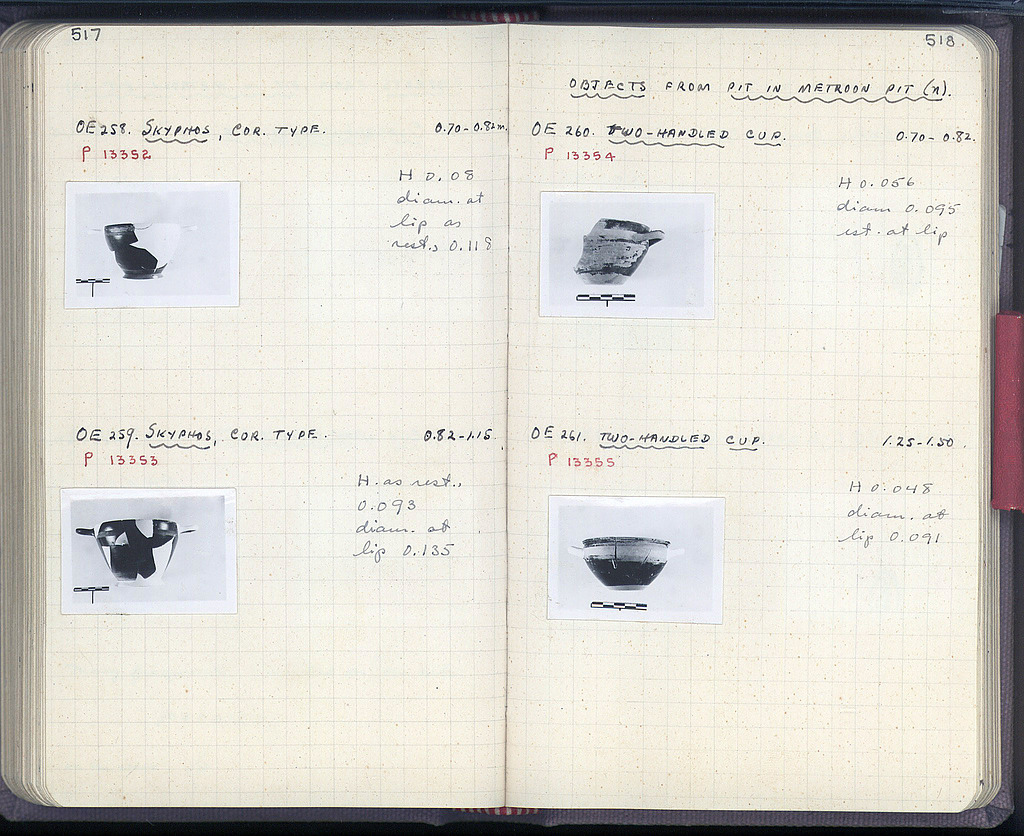 517
OE 258. SKYPHOS, COR. TYPE. 0.70-0.82m.
P 13352
H 0.08
diam. at
lip as
rest., 0.118
OE 259. SKYPHOS, COR. TYPE. 0.82-1.15.
P 13353
H. as rest.,
0.093
diam. at
lip 0.135
518.
OBJECTS FROM PIT IN METROON PIT (N).
OE 260. TWO-HANDLED CUP. 0.70-0.82.
P 13354
H 0.056
diam 0.095
est. at lip
OE 261. TWO-HANDLED CUP. 1.25-1.50.
P 13355
H 0.048
diam. at
lip 0.091